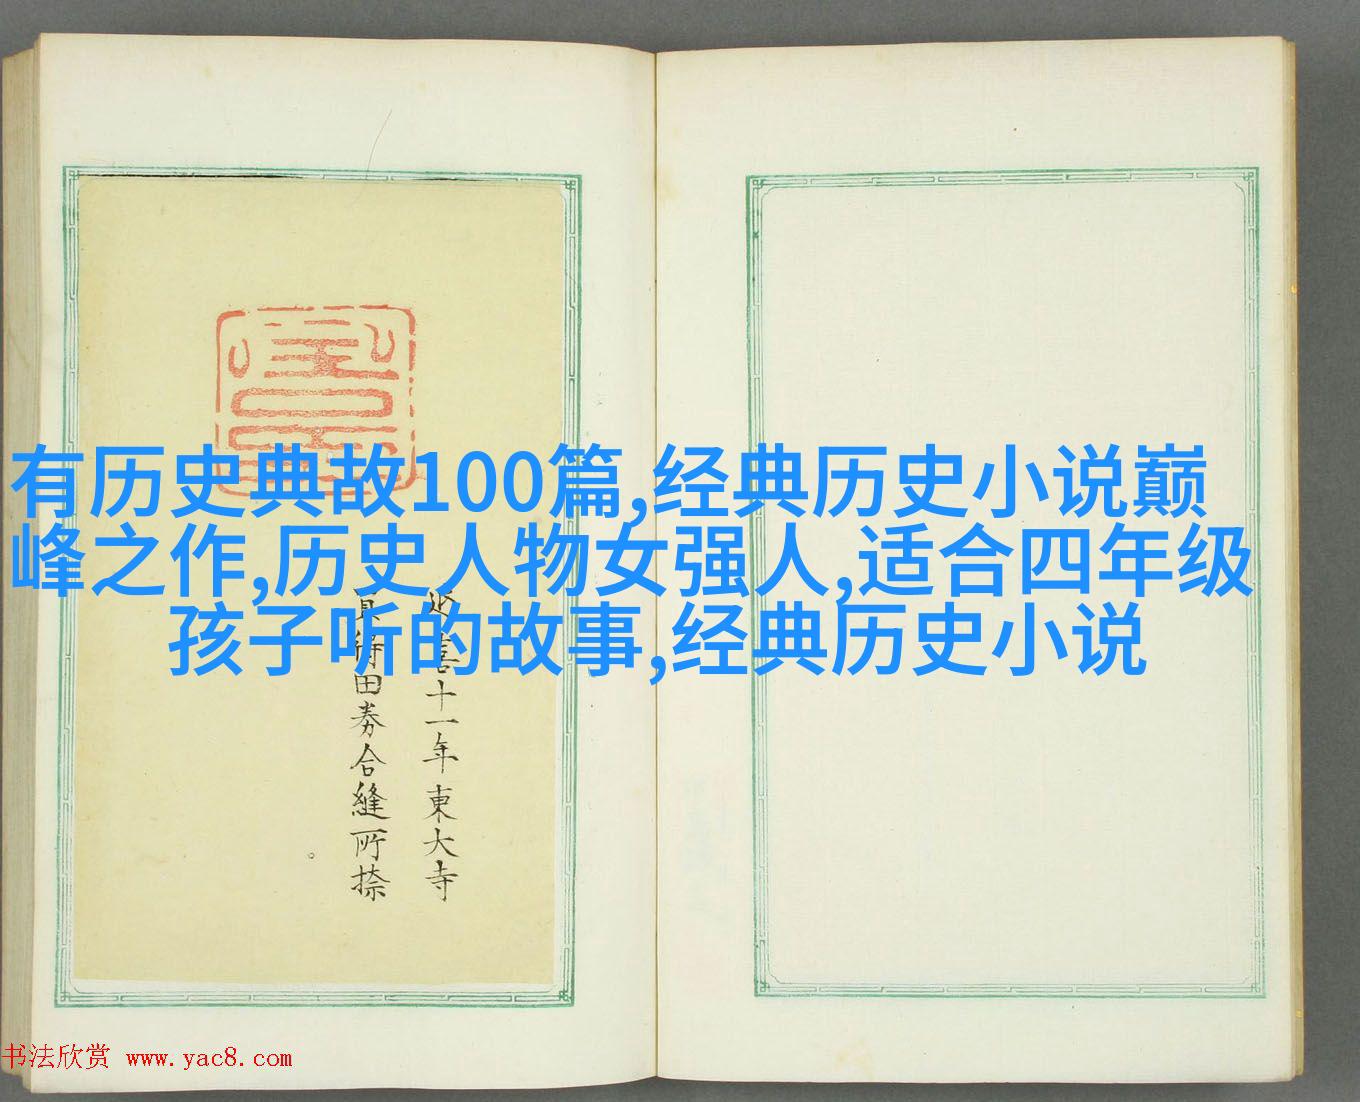 有历史典故100篇,经典历史小说巅
峰之作,历史人物女强人,适合四年级
孩子听的故事,经典历史小说
十一年東大寺
田券合縫所捺
书法欣赏 www.yac8.com